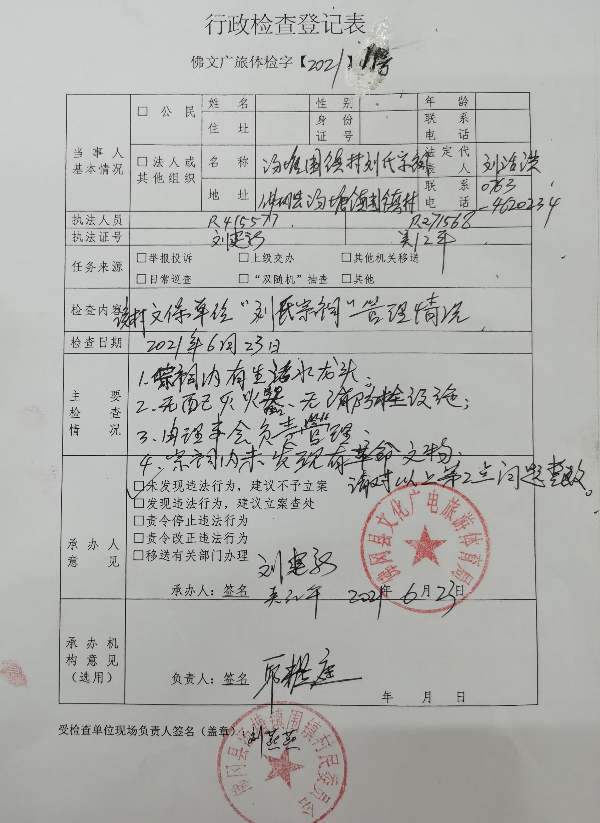 行政检查登记表
佛文广旅体检字【2021】11号
当事人
基本情况
□公民
姓名
性别
年龄
住址
身份
证号
联系
电话
□法人或
其他组织
名称
围镇村刘氏宗祠
法定代
表人
地址
围镇村
联系
电话
0763
-4620234
执法人员
执法证号
R415577
R271568
任务来源
□举报投诉
□上级交办
□其他机关移送
□日常巡查
□“双随机”抽查
□其他
检查内容
该村文保单位“刘氏宗祠”管理情况
检查日期
2021年6月23日
主要
检查
情况
1.宗祠内有生活水龙头、
2.无配灭火器、无消防栓设施;
3、由理事会负责管理、
4、宗祠内未发现有革命文物;
请对以上第2点问题整改。
承办人
意见
□未发现违法行为,建议不予立案
□发现违法行为,建议立案查处
□责令停止违法行为
□责令改正违法行为
□移送有关部门办理
承办人:签名
2021年6月23日
佛冈县文化广电旅游体育局
承办机
构意见
(选用)
负责人:签名
年 月 日
受检查单位现场负责人签名(盖章):
刘燕燕